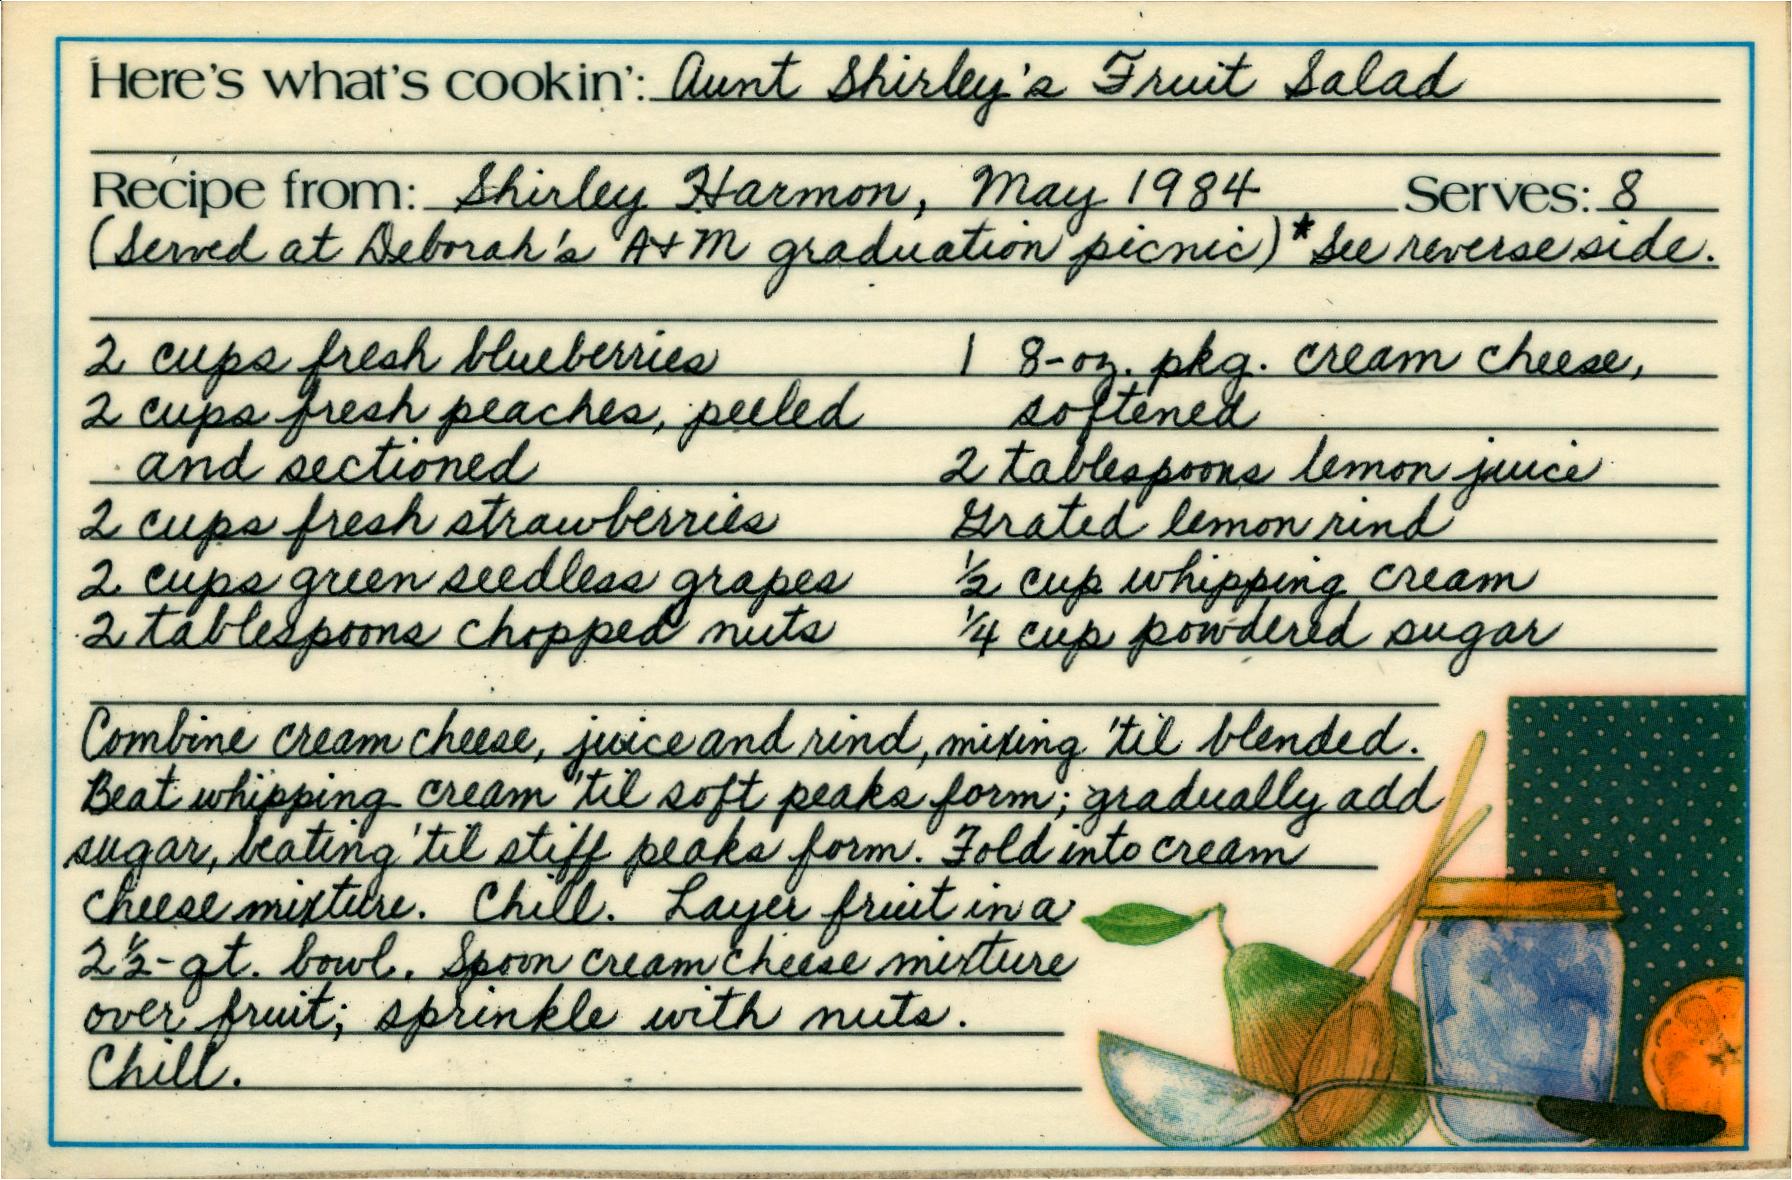 Here's what's cookin': Aunt Shirley's Fruit Salad
Recipe from: Shirley Harmon, May 1984 Serves: 8
(Served at Deborah's A+M graduation picnic) *See reverse side.
2 cups fresh blueberries
2 cups fresh peaches, peeled
and sectioned
2 cups fresh strawberries
2 cups green seedless grapes
2 tablespoons chopped nuts
1 8-oz. pkg. cream cheese,
softened
2 tablespoons lemon juice
Grated lemon rind
1/2 cup whipping cream
1/4 cup powdered sugar
Combine cream cheese, juice and rind, mixing 'til blended.
Beat whipping cream 'til soft peaks form; gradually add
sugar, beating 'til stiff peaks form. Fold into cream
cheese mixture. Chill. Layer fruit in a
2 1/2-qt. bowl. Spoon cream cheese mixture
over fruit; sprinkle with nuts.
Chill.